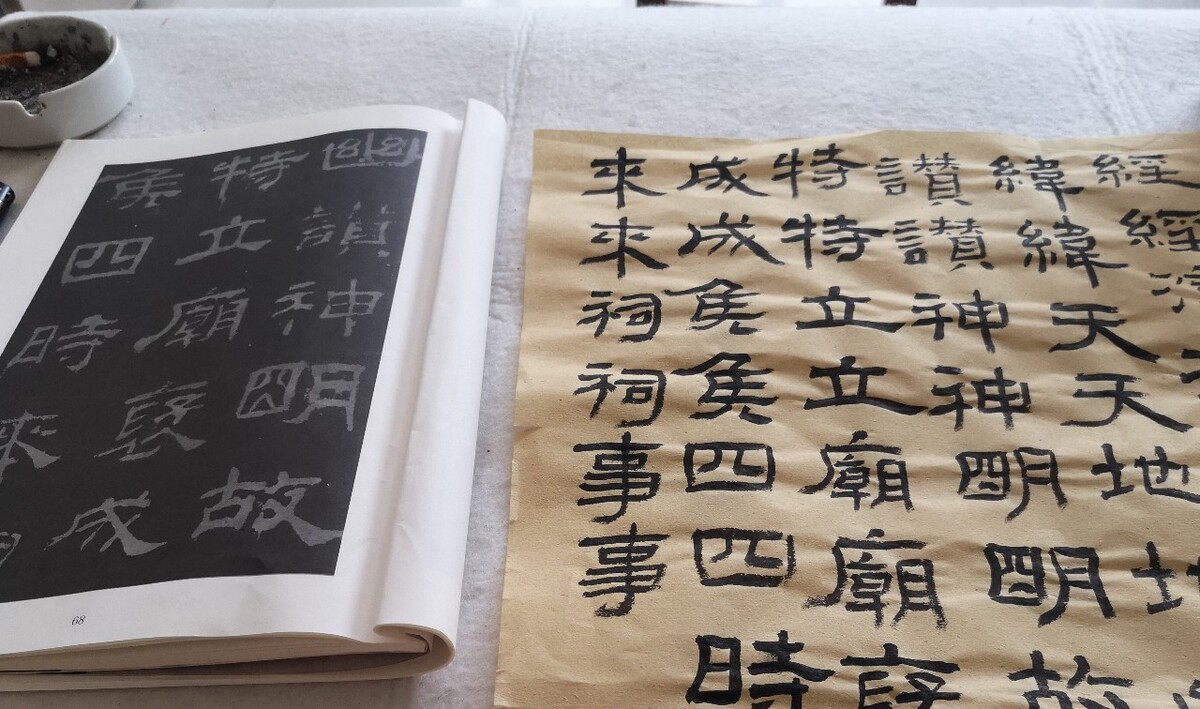 幽讃神明故
特立廟褒成
侯四時來
68
經經
緯緯天天地地
讃讃神神明明故
特特立立廟廟褒
成成侯侯四四時
來來祠祠事事